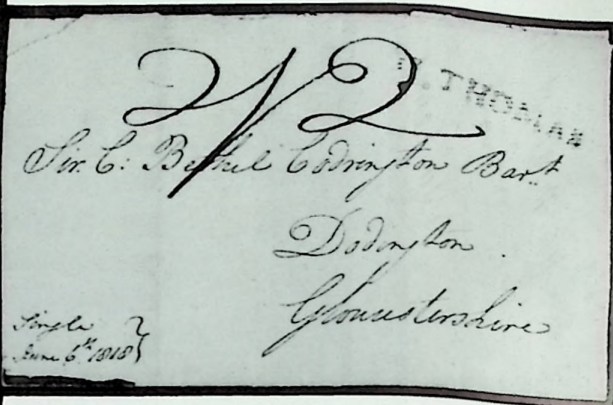 2/2
St THOMAS
Sir. C: Bethel Codrington Bart.
Dodington.
Gloucestershire
Single
June 6th. 1818